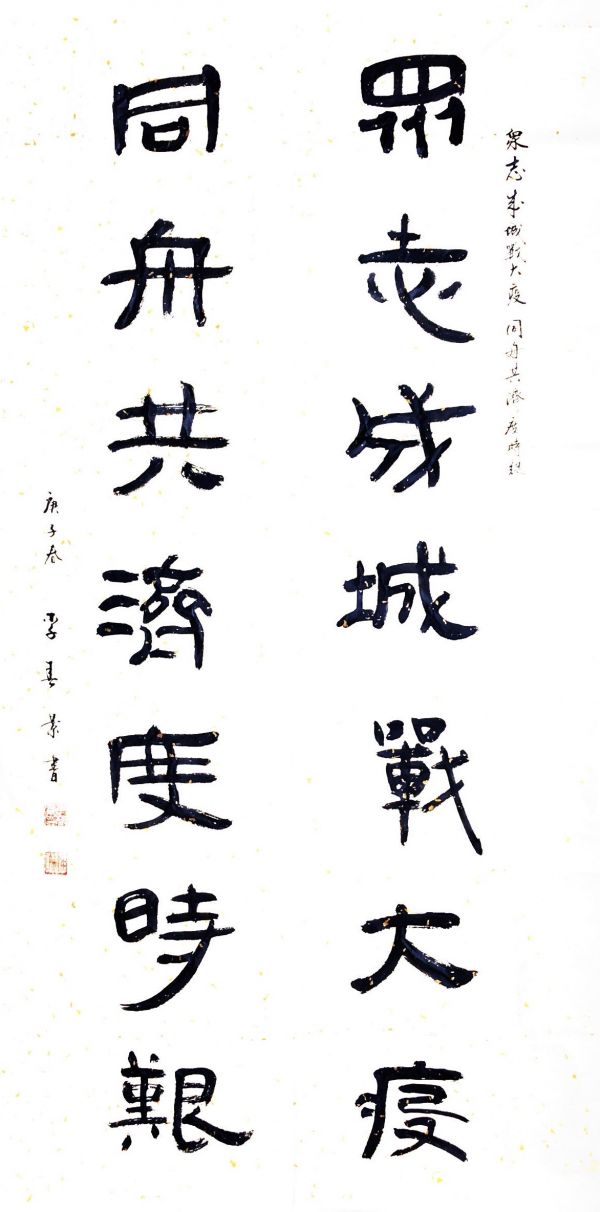 眾志成城戰大疫同舟共濟度時艱
眾志成城戰大疫
同舟共濟度時艱
庚子春 李春景書